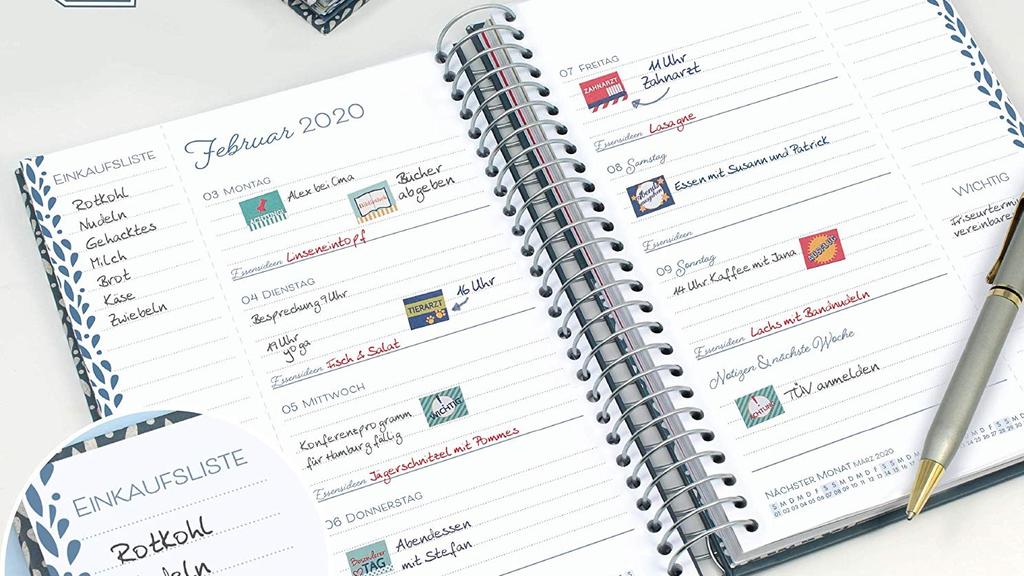 EINKAUFSLISTE
Rotkohl
Nudeln
Gehacktes
Milch
Brot
Käse
Zwiebeln
Februar 2020
03 MONTAG
Alex bei Oma
Bücher
abgeben
Essensideen Linseneintopf
04 DIENSTAG
Besprechung 9 Uhr
TIERARZT
16 Uhr
19 Uhr
yoga
Essensideen Fisch & Salat
05 MITTWOCH
WICHTIG
Konferenzprogramm
für Hamburg fällig
Essensideen Jägerschnitzel mit Pommes
06 DONNERSTAG
Besonderer
TAG
Abendessen
mit Stefan
07 FREITAG
ZAHNARZT
11 Uhr
Zahnarzt
Essensideen Lasagne
08 Samstag
Essen mit Susann und Patrick
Essensideen
09 Sonntag
14 Uhr Kaffee mit Jana
Essensideen Lachs mit Bandnudeln
Notizen & nächste Woche
ACHTUNG
TÜV anmelden
NÄCHSTER MONAT MÄRZ 2020
WICHTIG
EINKAUFSLISTE
Rotkohl